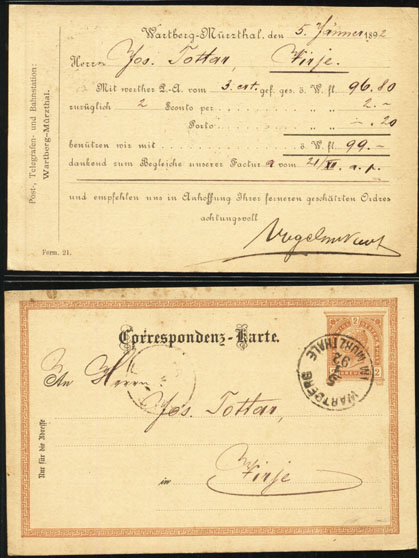 Post-, Telegrafen- und Bahnstation:
Wartberg-Mürzthal.
Wartberg-Mürzthal, den 5. Jänner 1892
Herrn Jos. Tottar, Virje.
Mit werther P.-A. vom 3. crt. gef. ges. ö. W. fl. 96.80
zuzüglich 2 Sconto per „ „ „ 2.-
Porto „ „ „ -.20
benützen wir mit ö. W. fl. 99.-
dankend zum Begleiche unserer Factur a vom 21/XII. a. p.
und empfehlen uns in Anhoffung Ihrer ferneren geschätzten Ordres
achtungsvoll
Form. 21.
Correspondenz-Karte.
2 2
WARTBERG IM MÜRZTHALE
5 1 92
An Herrn
Jos. Tottar,
in Virje
Nur für die Adresse